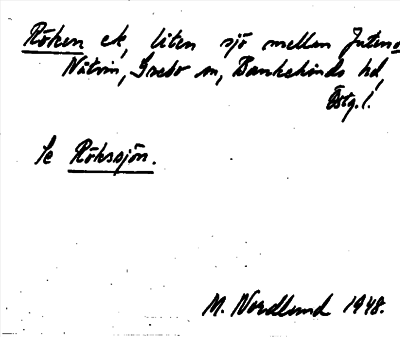 Röken ek, liten sjö mellan
Nätrin, Grebo sn, Bankekinds hd,
Östg. l.
Se Rökssjön.
M. Nordlund 1948.